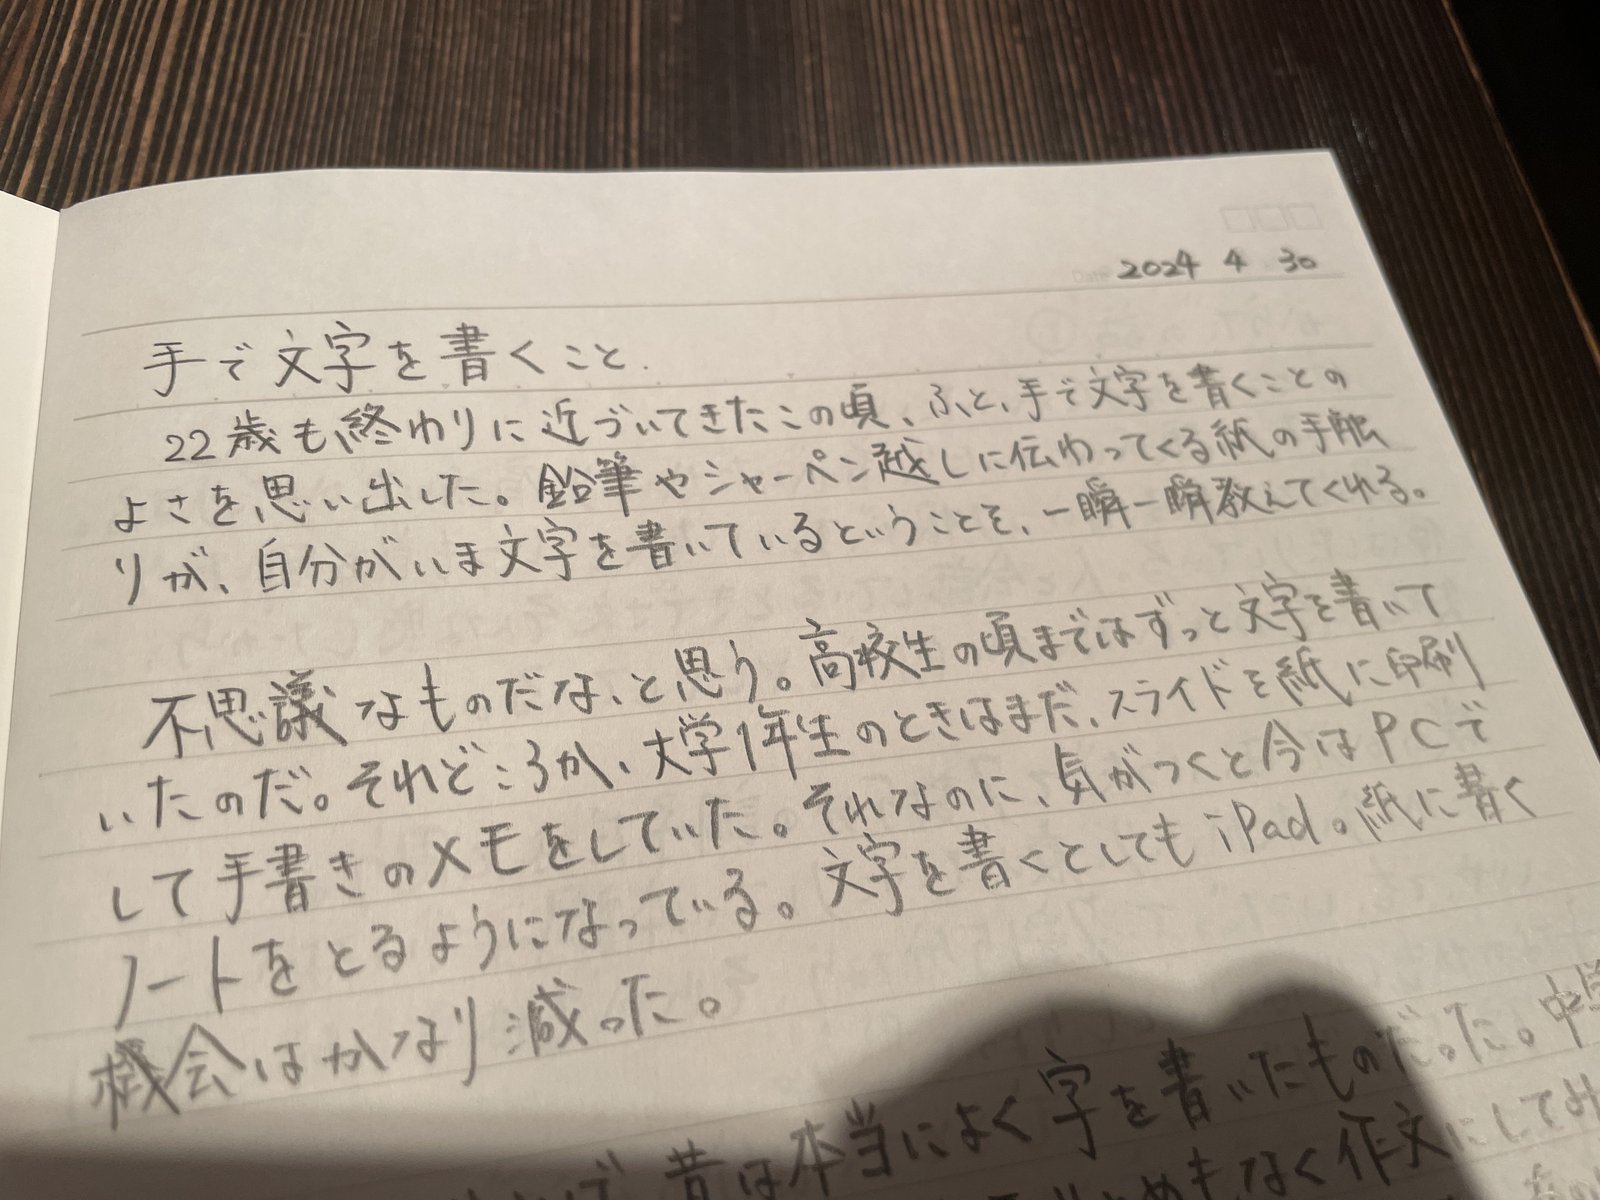 2024 4 30
手で文字を書くこと.
22歳も終わりに近づいてきたこの頃、ふと、手で文字を書くことの
よさを思い出した。鉛筆やシャーペン越しに伝わってくる紙の手触
りが、自分がいま文字を書いているということを、一瞬一瞬教えてくれる。
不思議なものだな、と思う。高校生の頃まではずっと文字を書いて
いたのだ。それどころか、大学1年生のときはまだ、スライドを紙に印刷
して手書きのメモをしていた。それなのに、気がつくと今はPCで
ノートをとるようになっている。文字を書くとしてもiPad。紙に書く
機会はかなり減った。
昔は本当によく字を書いたものだった。中学
もなく作文にしてみ